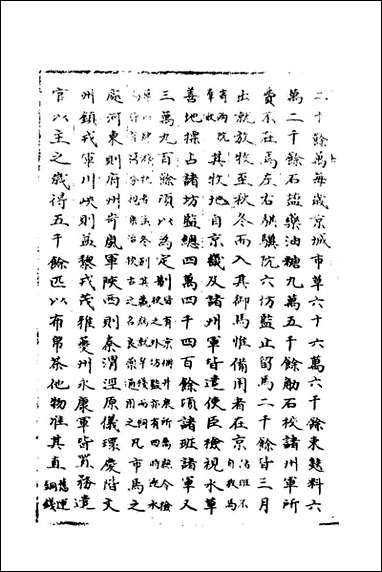 二十餘萬每歲京城市草六十六萬六千餘束麩料六
萬二千餘石鹽藥油糖九萬五千餘觔石校諸州軍所
費不在焉左右騏驥院六坊監止留馬二千餘皆三月
出就放牧至秋冬而入其御馬惟備用者在京
有兩院其牧地自京畿及諸州軍皆遣使臣檢視水草
善地標占諸坊監總四萬四千四百餘頃諸班諸軍又
三萬九百餘頃以為定制
凡市馬之
處河東則府州岢嵐軍陝西則秦渭涇原儀環慶階文
州鎮戎軍川峽則益黎戎茂雅夔州永康軍皆置務遣
官以主之歲得五千餘匹以布帛茶他物准其直
舊運
銅錢